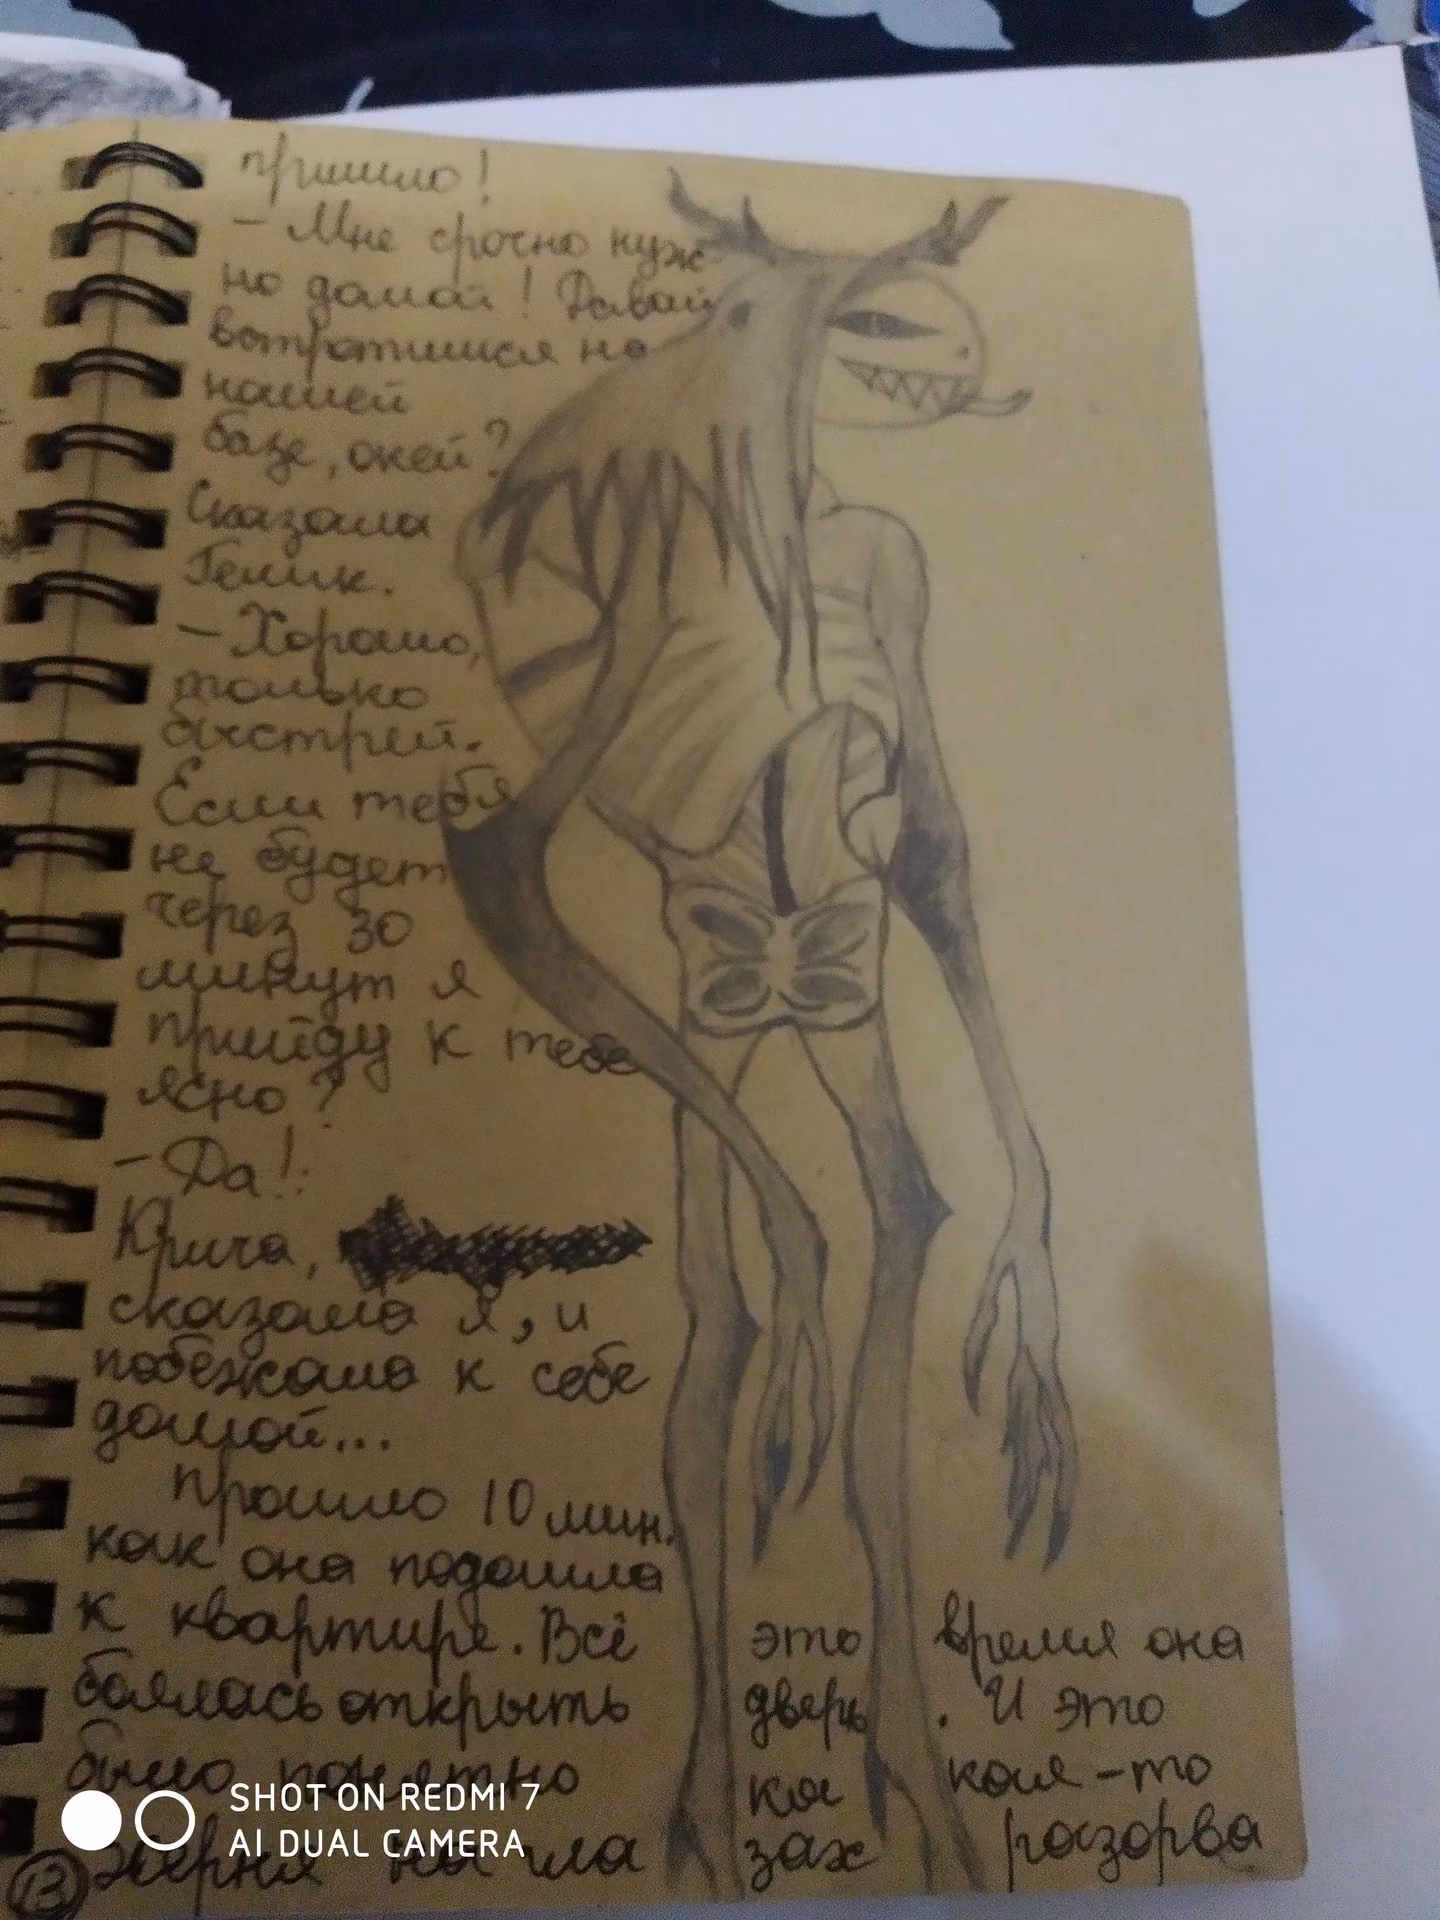 пришло!
– Мне срочно нуж-
но домой! Давай
встратимися на
нашей
базе, окей?
Сказала
Гелик.
– Хорошо,
только
быстрей.
Если тебя
не будет
через 30
минут я
прийду к тебе
ясно?
– Да!
Крича,
сказала я, и
побежала к себе
домой...
Прошло 10 мин.
как она подошла
к квартире. Всё это время она
боялась открыть дверь. И это
было понятно ка кая-то
разорва
13
SHOT ON REDMI 7
AI DUAL CAMERA